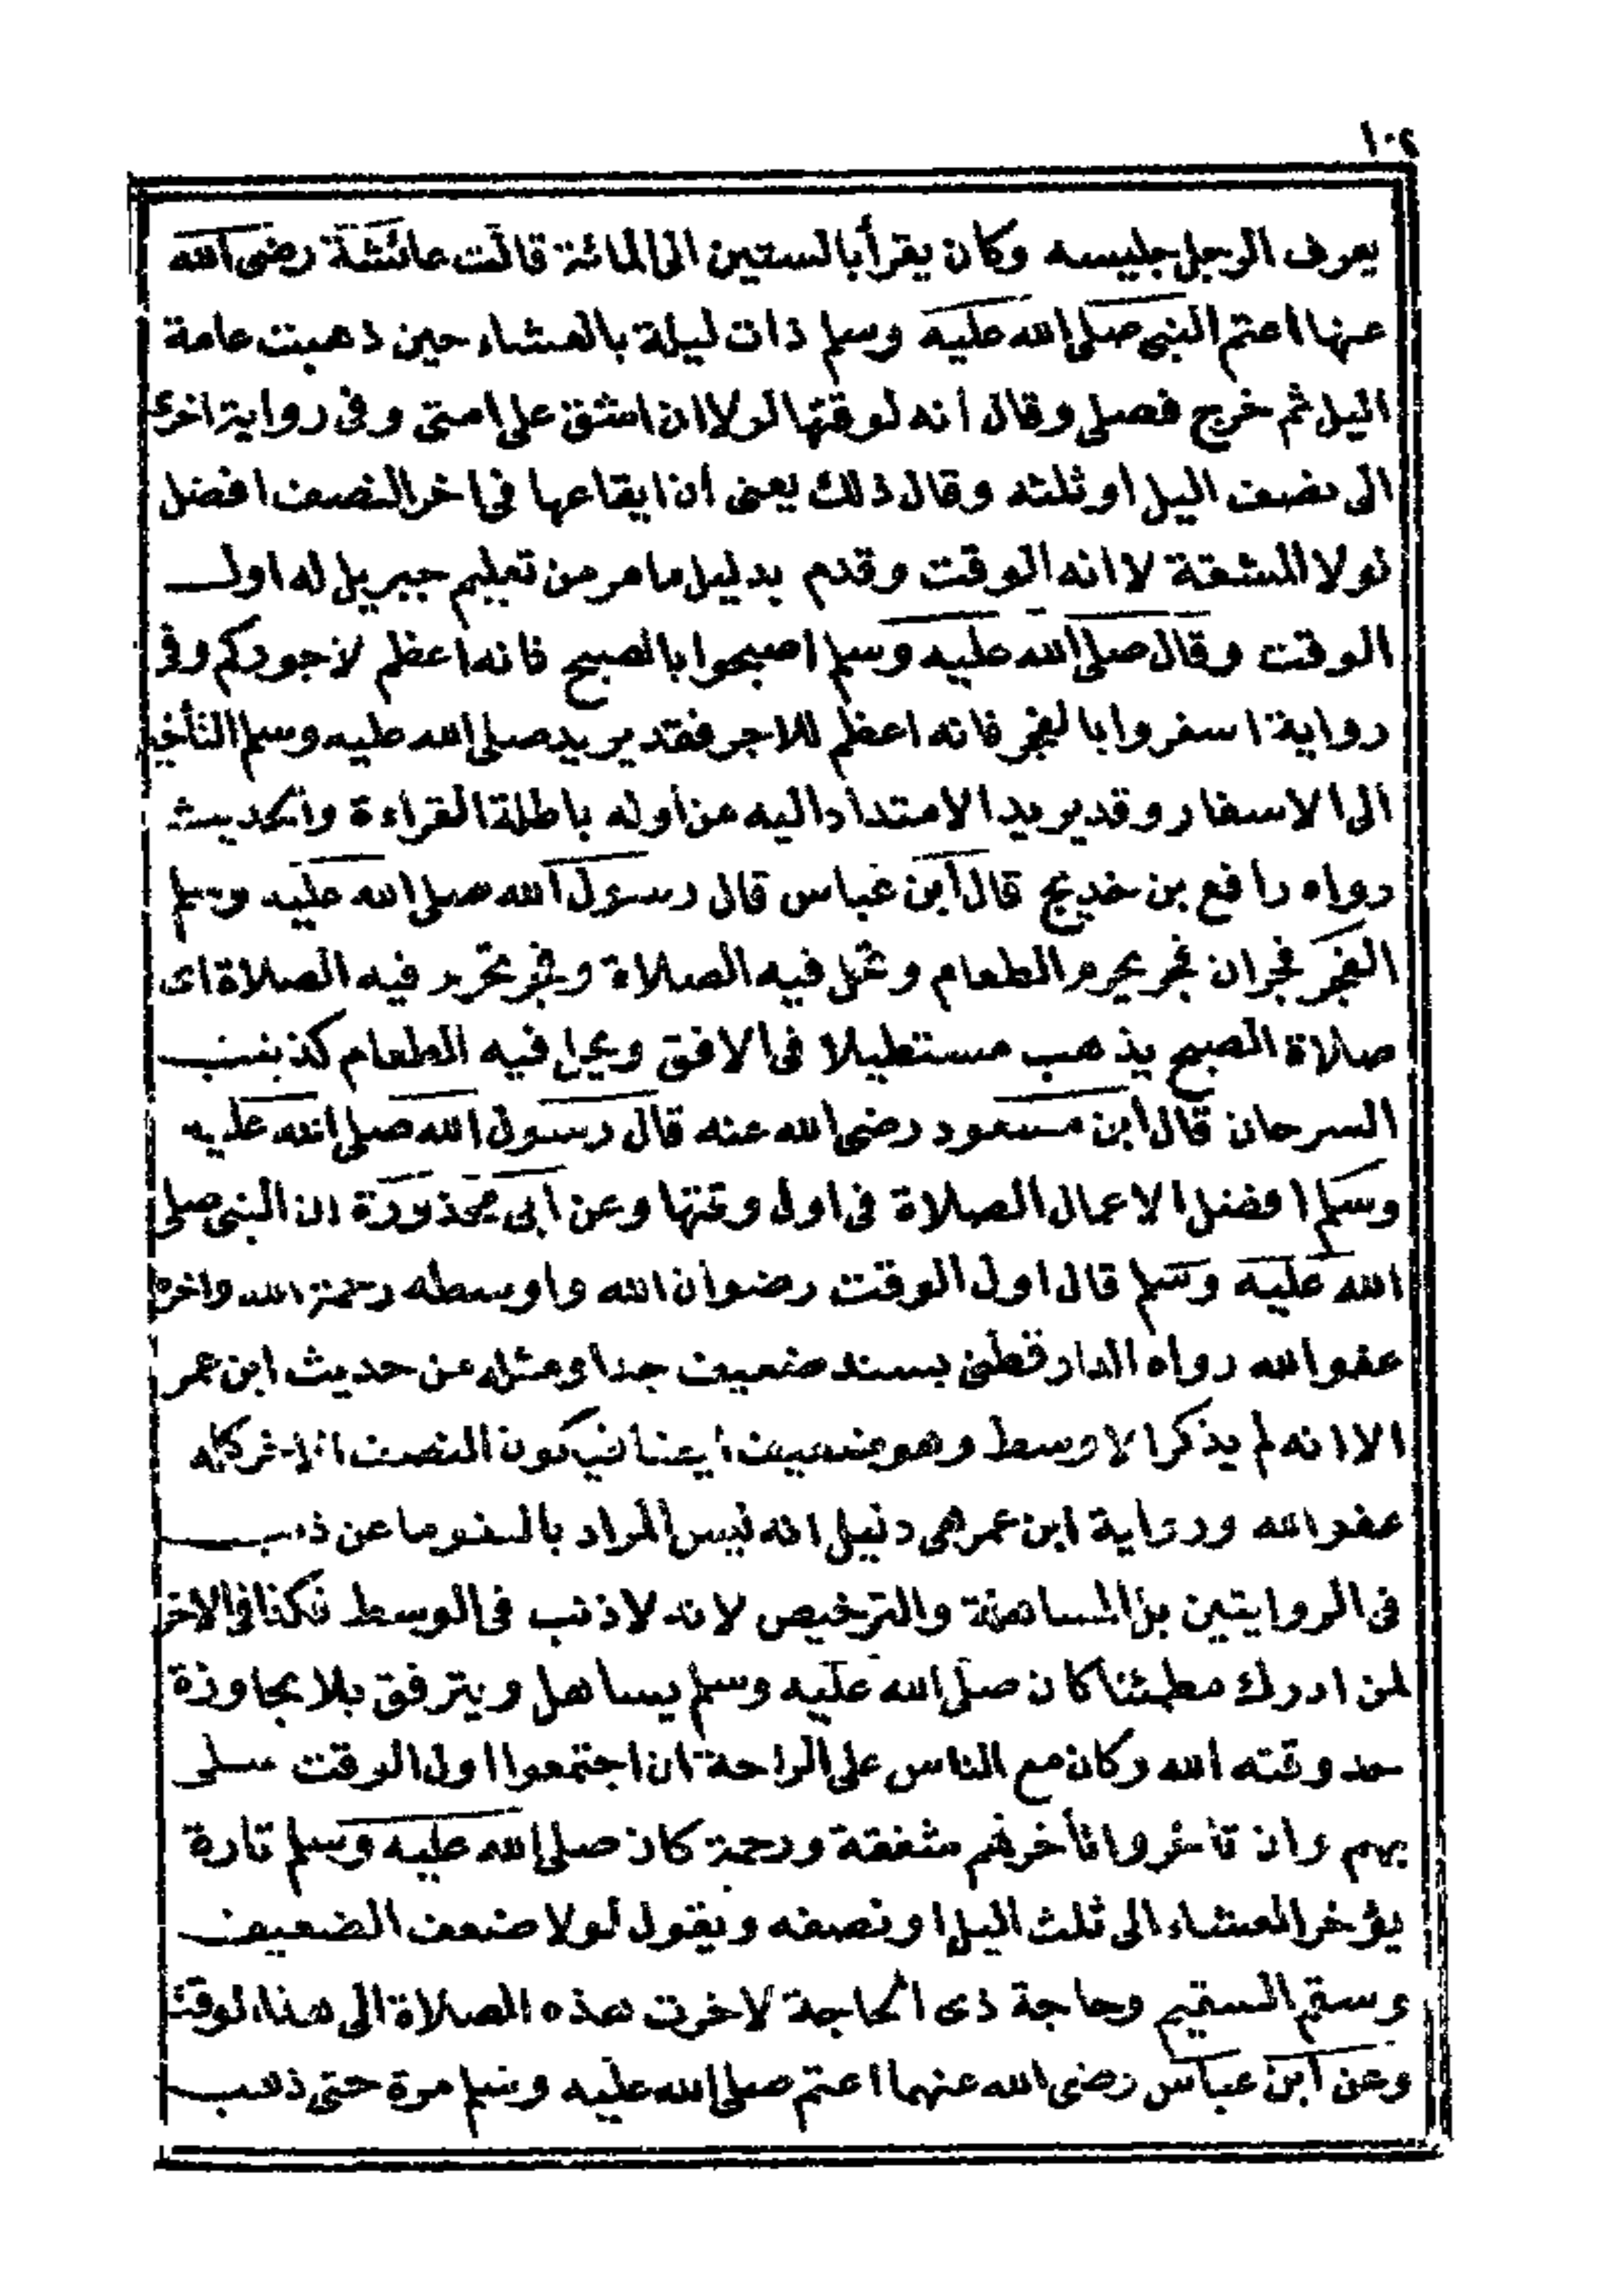 ١٠٢
يعرف الرجل جليسه وكان يقرأ بالستين الى المائة قالت عائشة رضى الله
عنها اعتم النبى صلى الله عليه وسلم ذات ليلة بالعشاء حين ذهبت عامة
اليل ثم خرج فصلى وقال انه لوقتها لولا ان اشق على امتى وفى رواية اخرى
الى نصف اليل او ثلثه وقال ذلك يعنى ان ايقاعها فى اخر النصف افضل
لولا المشقة لا انه الوقت وقدم بدليل ما مر من تعليم جبريل له اول
الوقت وقال صلى الله عليه وسلم اصبحوا بالصبح فانه اعظم لاجوركم وفى
رواية اسفروا بالفجر فانه اعظم للاجر فقد يريد صلى الله عليه وسلم التأخير
الى الاسفار وقد يريد الامتداد اليه من اوله باطلة القراءة والحديث
رواه رافع بن خديج قال ابن عباس قال رسول الله صلى الله عليه وسلم
الفجر فجران فجر يحرم الطعام وتحل فيه الصلاة وفجر تحرم فيه الصلاة اى
صلاة الصبح يذهب مستطيلا فى الافق ويحل فيه الطعام كذنب
السرحان قال ابن مسعود رضى الله عنه قال رسول الله صلى الله عليه
وسلم افضل الاعمال الصلاة فى اول وقتها وعن ابى محذورة ان النبى صلى
الله عليه وسلم قال اول الوقت رضوان الله واوسطه رحمة الله واخره
عفو الله رواه الدارقطنى بسند ضعيف جدا ومثله من حديث ابن عمر
الا انه لم يذكر الاوسط وهو ضعيف ايضا فيكون النصف الاخر كله
عفو الله ورواية ابن عمر هى دليل انه ليس المراد بالعفو ما عن ذنب
فى الروايتين بل المساهلة والترخيص لانه لا ذنب فى الوسط فكذا فى الاخر
لمن ادرك مطمئنا كان صلى الله عليه وسلم يساهل ويترفق بلا مجاوزة
حد وقته الله وكان مع الناس على الراحة ان اجتمعوا اول الوقت صلى
بهم وان تأخروا تأخر بهم شفقة ورحمة كان صلى الله عليه وسلم تارة
يؤخر العشاء الى ثلث اليل او نصفه ويقول لولا ضعف الضعيف
وسقم السقيم وحاجة ذى الحاجة لاخرت هذه الصلاة الى هذا الوقت
وعن ابن عباس رضى الله عنهما اعتم صلى الله عليه وسلم مرة حتى ذهب